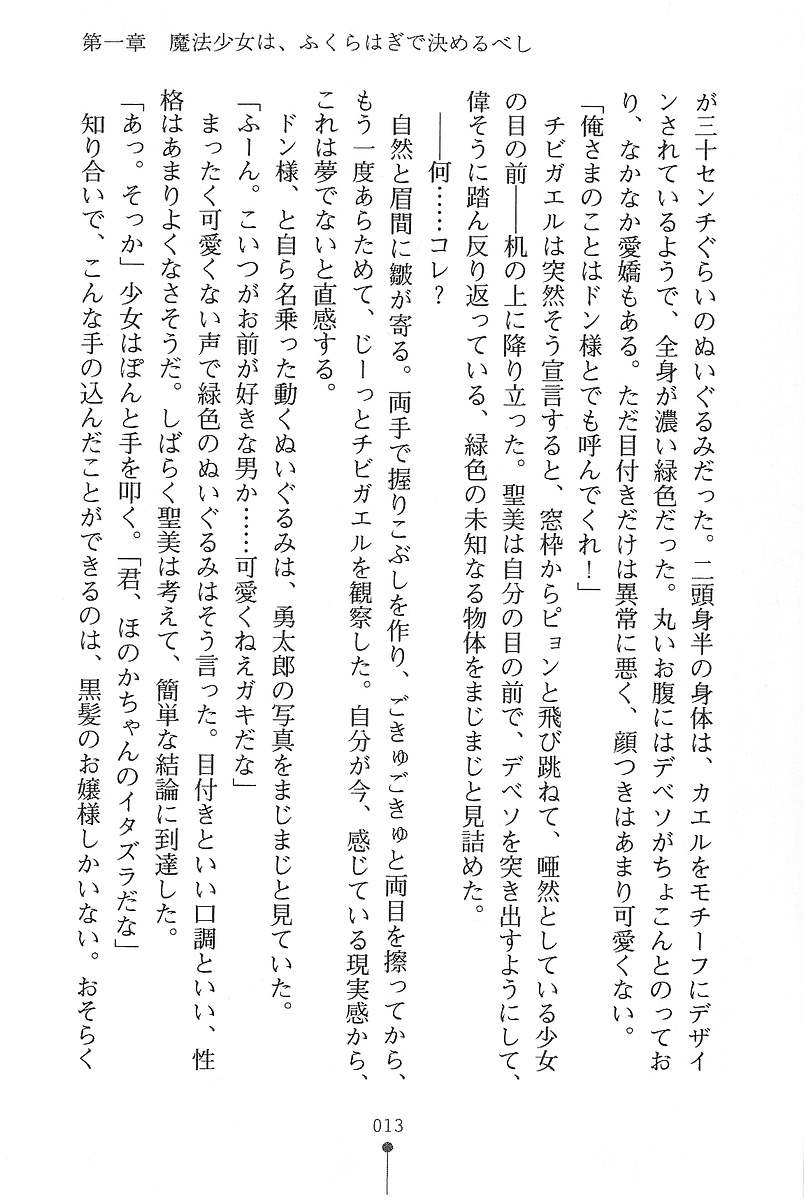 第一章　魔法少女は、ふくらはぎで決めるべし
が三十センチぐらいのぬいぐるみだった。二頭身半の身体は、カエルをモチーフにデザイ
ンされているようで、全身が濃い緑色だった。丸いお腹にはデベソがちょこんとのってお
り、なかなか愛嬌もある。ただ目付きだけは異常に悪く、顔つきはあまり可愛くない。
「俺さまのことはドン様とでも呼んでくれ！」
チビガエルは突然そう宣言すると、窓枠からピョンと飛び跳ねて、唖然としている少女
の目の前――机の上に降り立った。聖美は自分の目の前で、デベソを突き出すようにして、
偉そうに踏ん反り返っている、緑色の未知なる物体をまじまじと見詰めた。
――何……コレ？
自然と眉間に皺が寄る。両手で握りこぶしを作り、ごきゅごきゅと両目を擦ってから、
もう一度あらためて、じーっとチビガエルを観察した。自分が今、感じている現実感から、
これは夢でないと直感する。
ドン様、と自ら名乗った動くぬいぐるみは、勇太郎の写真をまじまじと見ていた。
「ふーん。こいつがお前が好きな男か……可愛くねえガキだな」
まったく可愛くない声で緑色のぬいぐるみはそう言った。目付きといい口調といい、性
格はあまりよくなさそうだ。しばらく聖美は考えて、簡単な結論に到達した。
「あっ。そっか」少女はぽんと手を叩く。「君、ほのかちゃんのイタズラだな」
知り合いで、こんな手の込んだことができるのは、黒髪のお嬢様しかいない。おそらく
013